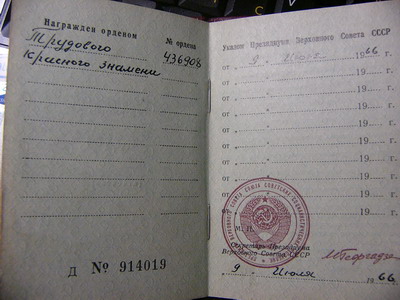 Награжден орденом
№ ордена
Трудового
436908
Красного знамени
Д № 914019
Указом Президиума Верховного Совета СССР
от „ 9 „ Июля 1966 г.
от „ „ 19 г.
от „ „ 19 г.
от „ „ 19 г.
от „ „ 19 г.
от „ „ 19 г.
от „ „ 19 г.
от „ „ 19 г.
М. П.
Секретарь Президиума
Верховного Совета СССР
„ 9 „ Июля 1966 г.